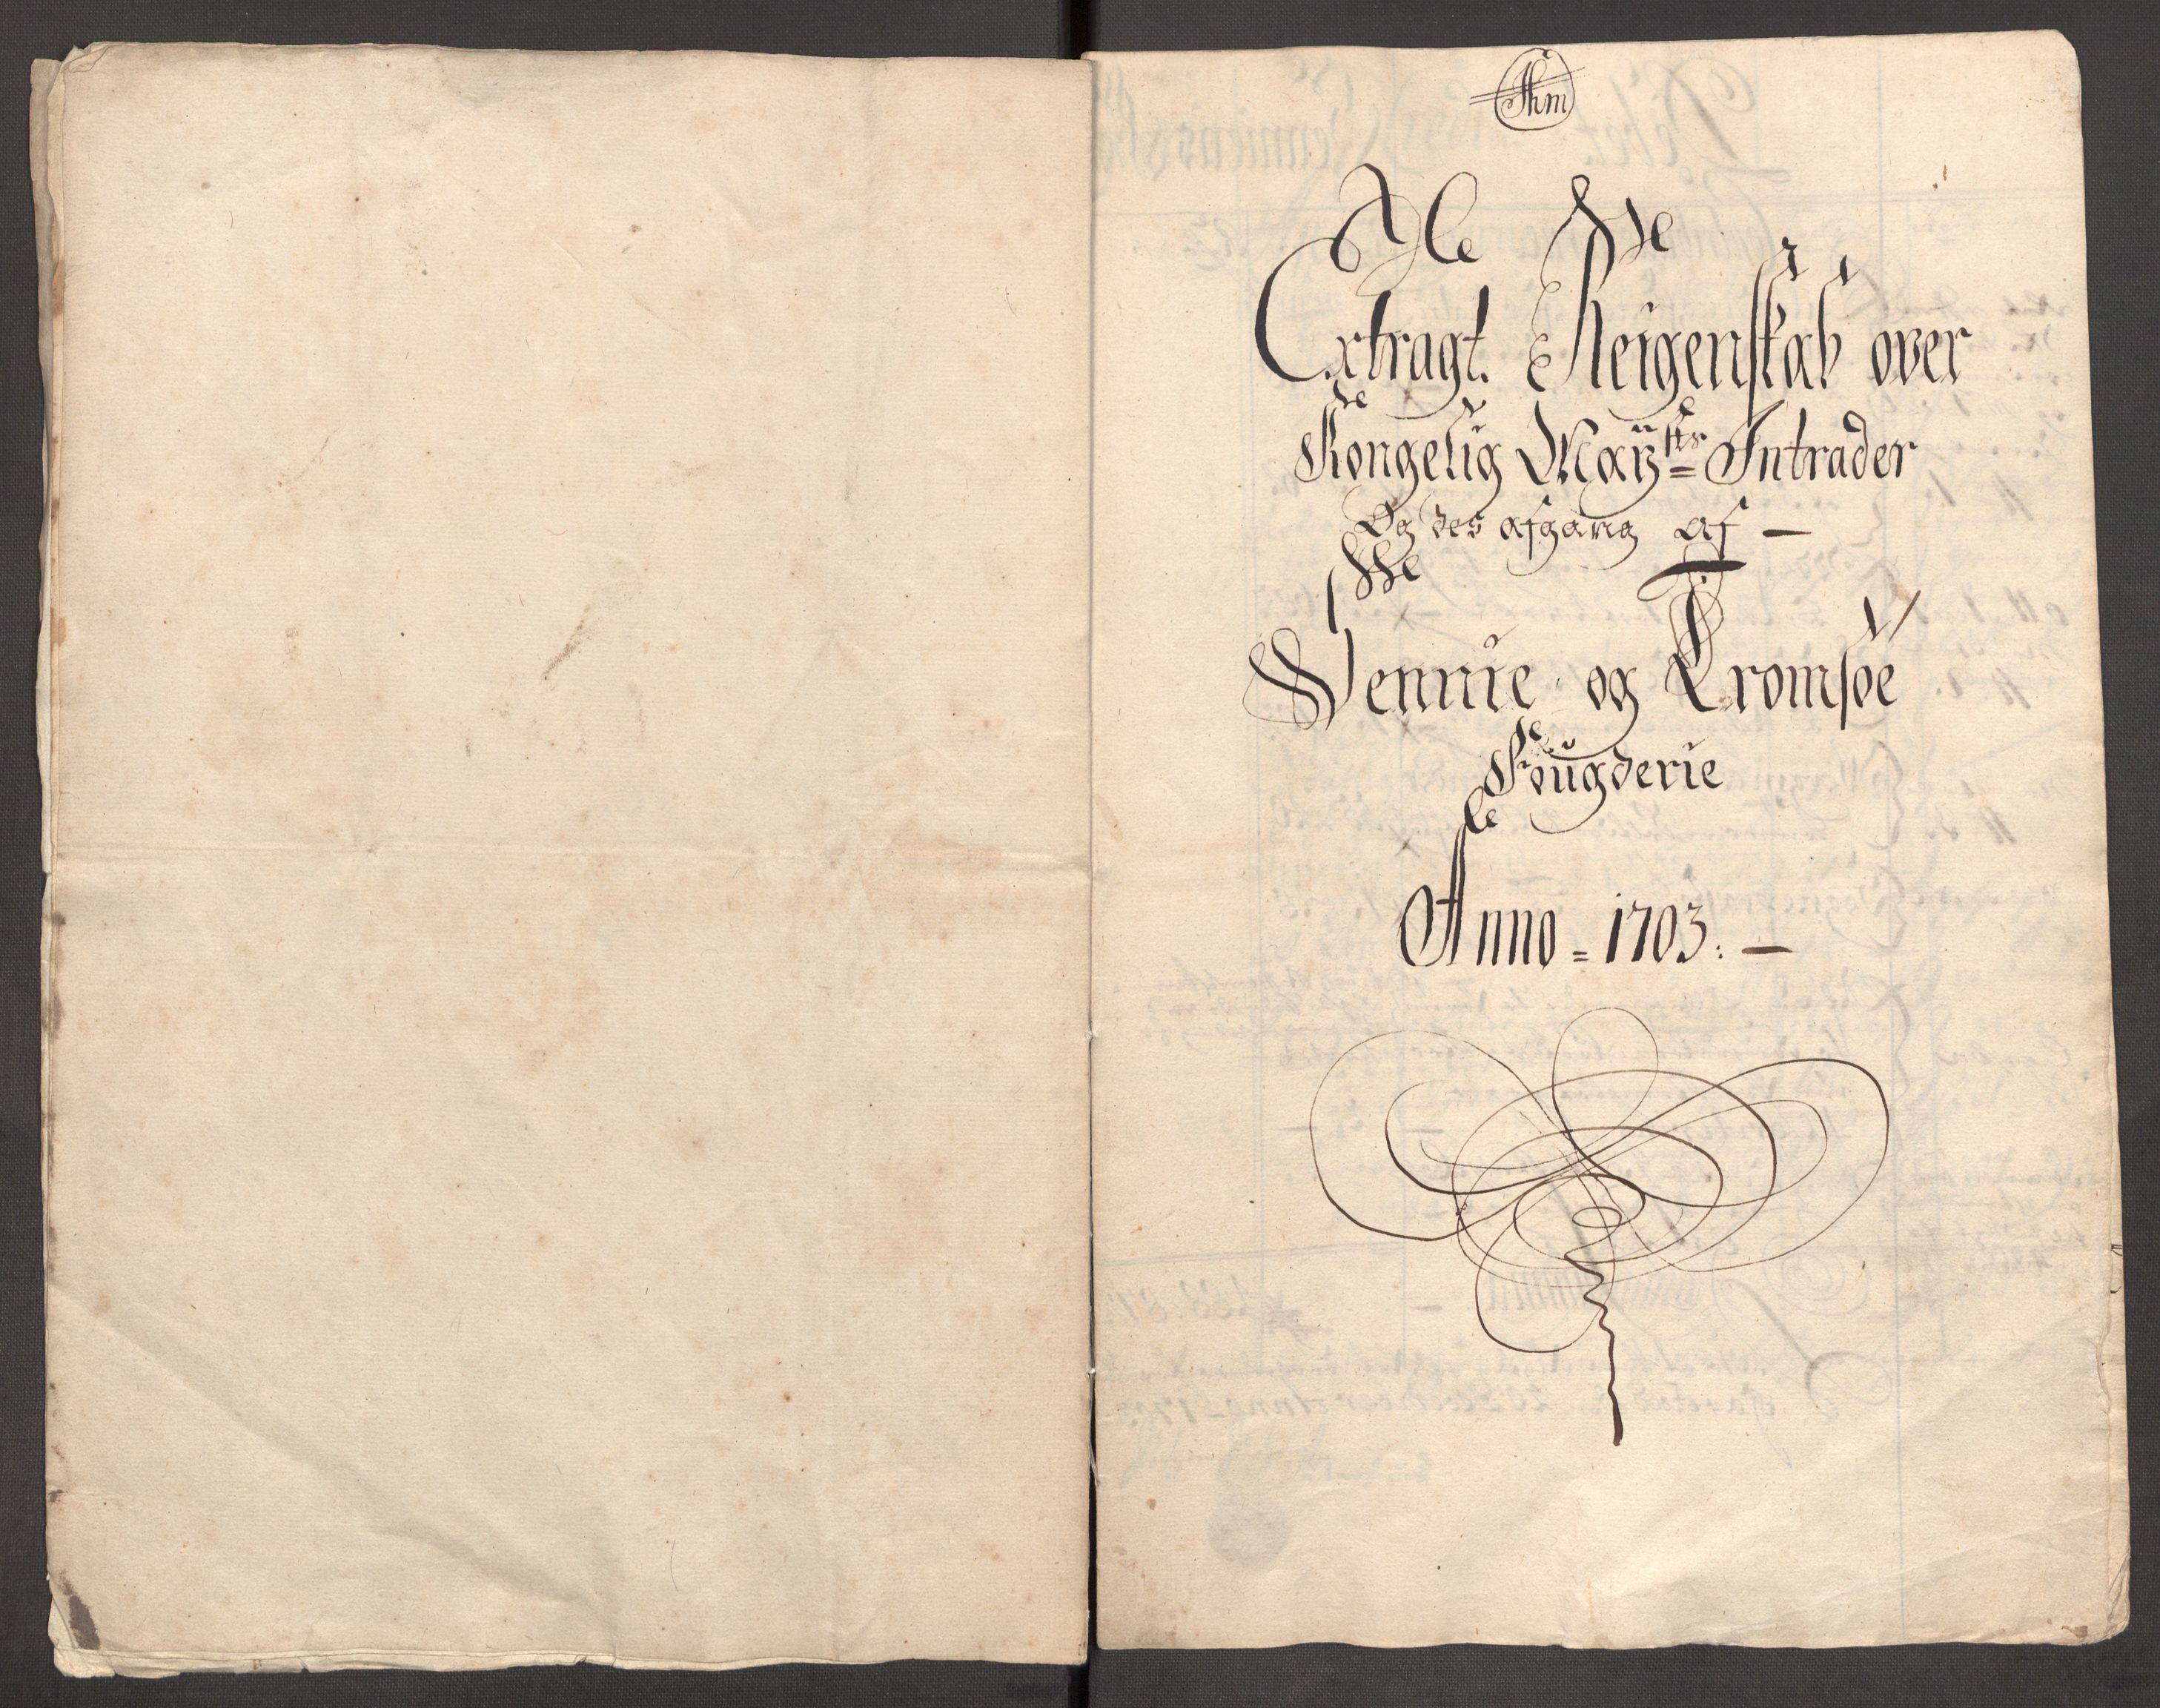 Extragt Reigenskab over
Kongelig Maÿsts= Intrader
Og des afgang af —
Sennie og Tromsøe
Fougderie
Anno = 1703. —